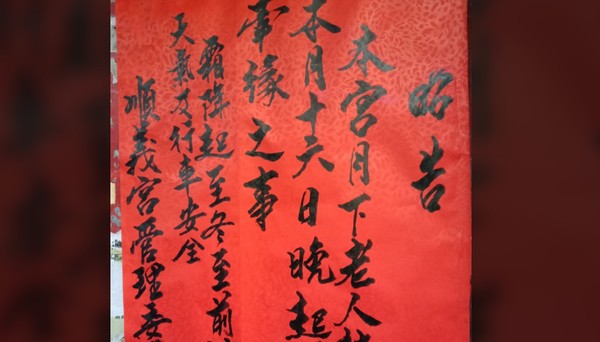 昭告
本宮月下老人
本月十六日晚起
事緣之事
霜降起至冬至前
天氣及行車安全
順義宮管理委